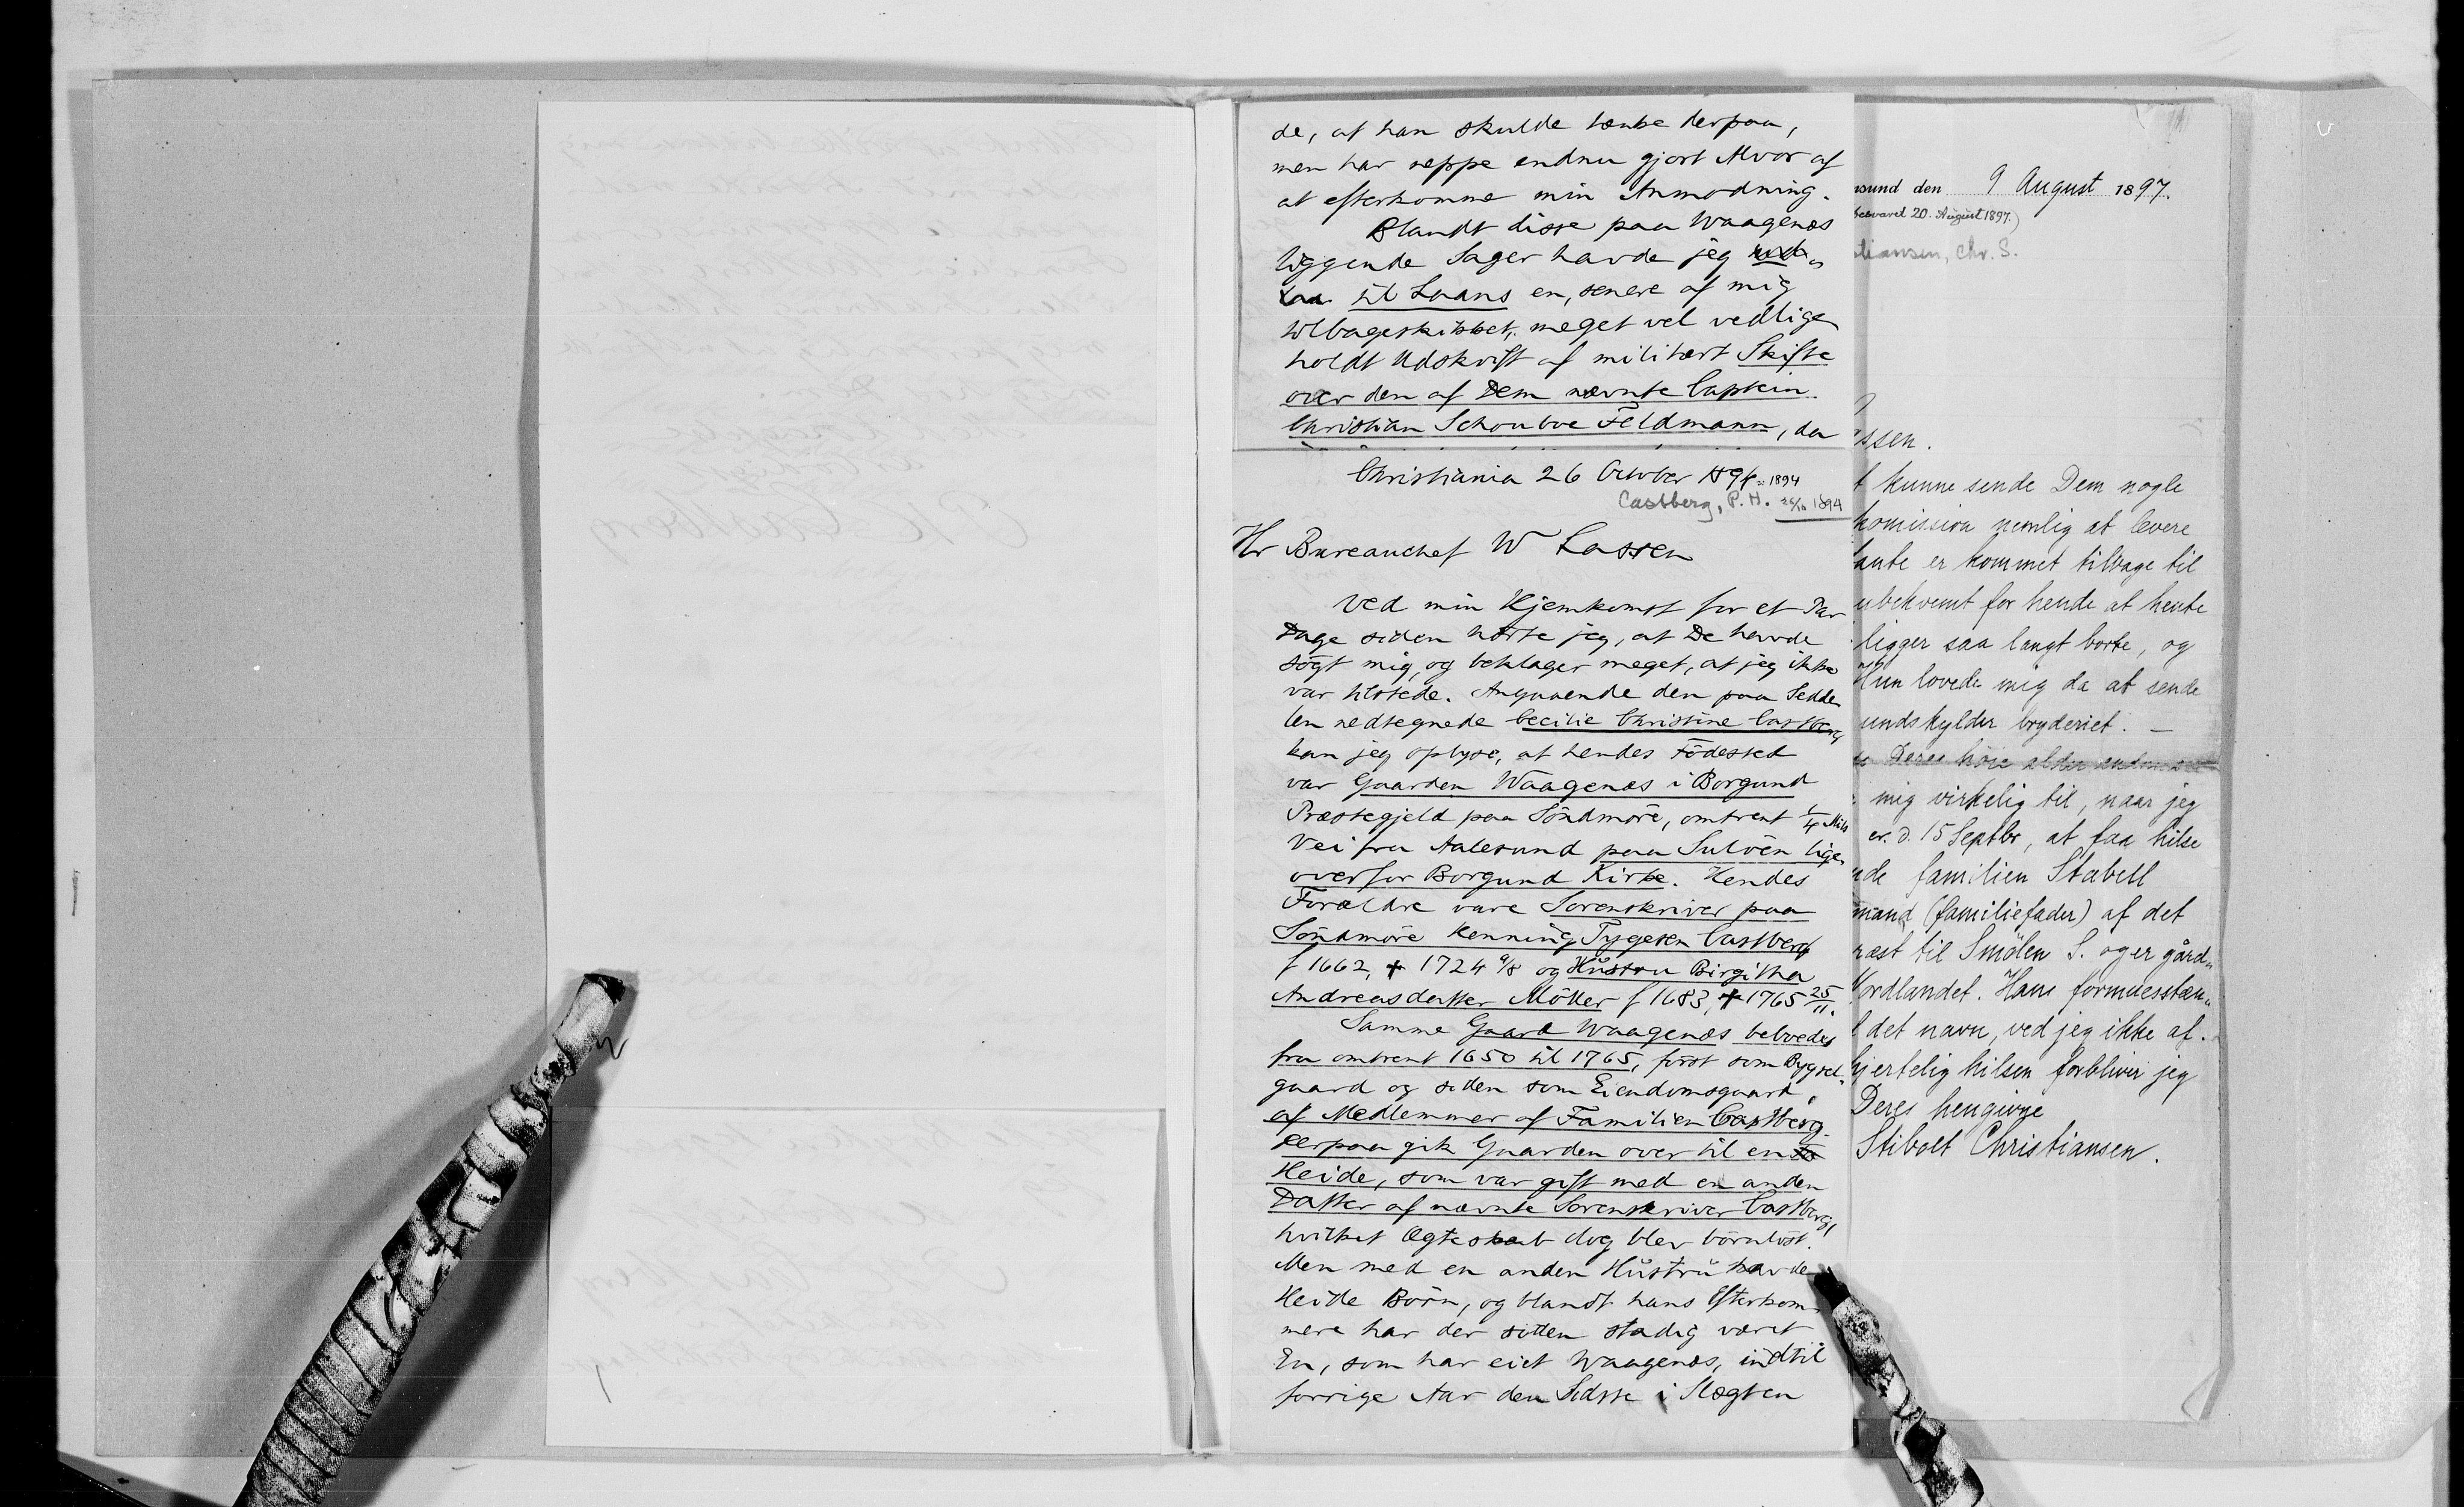 de, at han skulde tænke derpaa,
men har neppe endnu gjort Alvor af
at efterkomme min Anmodning.
Blandt disse paa Waagenæs
liggende Sager havde jeg
til Laans en, senere af mig
tilbageskikket, meget vel vedlige
holdt Udskrift af militært Skifte
over den af Dem nævnte Captein
Christian Schouboe Feldmann, der
Christiania 26 October 1894 = 1894
Castberg, P. H. 26/10 1894
Hr Bureauchef W Lassen
Ved min Hjemkomst for et Par
Dage siden hørte jeg, at De havde
søgt mig, og beklager meget, at jeg ikke
var tilstede. Angaaende den paa Sedde
len nedtegnede Cecilie Christine Castberg
kan jeg oplyse, at hendes Födested
var Gaarden Waagenæs i Borgund
Præstegjeld paa Söndmöre, omtrent 1/4 Mils
Vei fra Aalesund paa Sulöen lige
overfor Borgund Kirke. Hendes
Forældre vare Sorenskriver paa
Söndmöre Henning Tygesen Castberg
f 1662, + 1724 9/8 og Hustru Birgitha
Andreasdatter Möller f 1683, + 1765 25/11.
Samme Gaard Waagenæs beboedes
fra omtrent 1650 til 1765, först som Bygsel-
gaard og siden som Eiendomsgaard,
af Medlemmer af Familien Castberg.
Derpaa gik Gaarden over til en
Heide, som var gift med en anden
Datter af nævnte Sorenskriver Castberg,
hvilket Ægteskab dog blev börnlöst.
Men med en anden Hüstrü havde
Heide Börn, og blandt hans Efterkom-
mere har der siden stadig været
En, som har eiet Waagenæs, indtil
forrige Aar den Sidste i Slægten
sund den 9 August 1897.
besvaret 20. August 1897.)
tiansen, Chr. S.
ssen.
t kunne sende Dem nogle
komission nemlig at levere
tante er kommet tilbage til
ubekvemt for hende at hente
ligger saa langt borte, og
Hun lovede mig da at sende
undskylder bryderiet. —
Deres höie alder
mig virkelig til, naar jeg
er. d. 15 Septbr, at faa hilse
nde familien Stabell
mand (familiefader) af det
ræst til Smölen S. og er gård-
Nordlandet. Hans formuesstæn-
l det navn, ved jeg ikke af.
hjertelig hilsen forbliver jeg
Deres hengivne
Stibolt Christiansen.